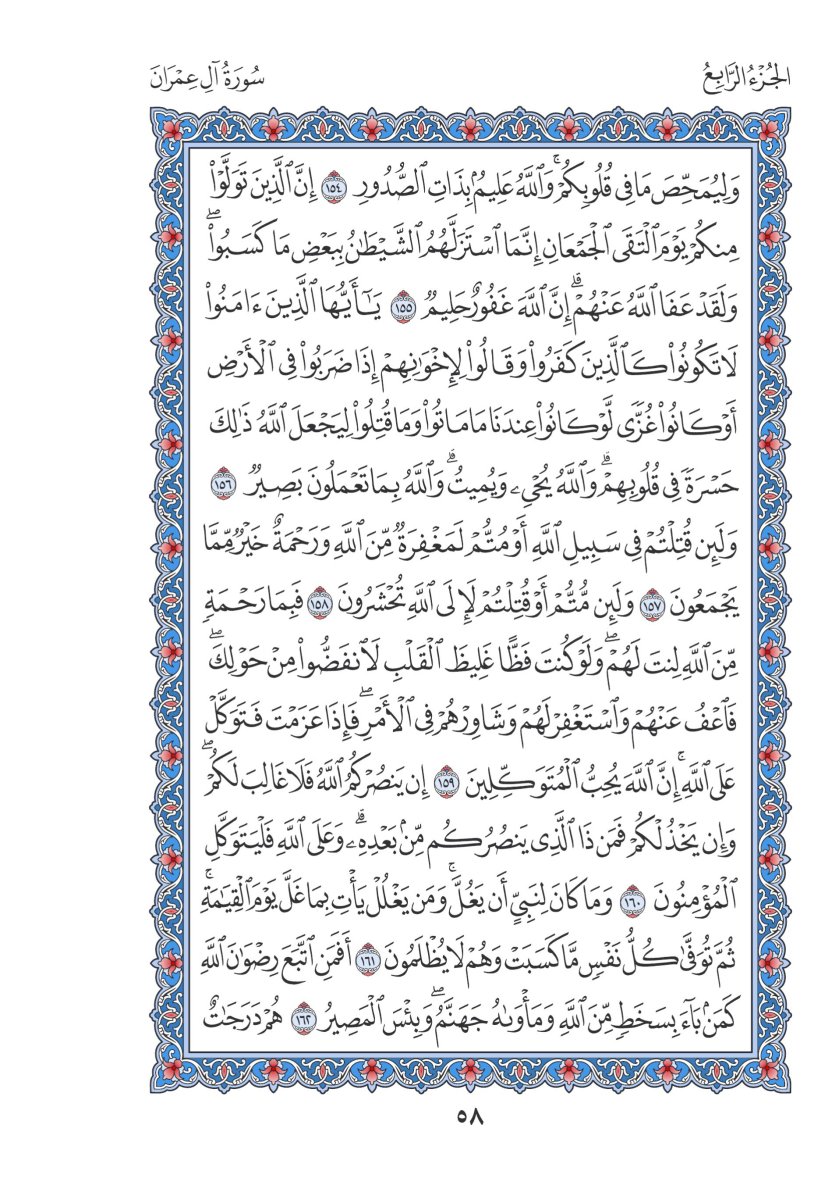 الجُزْءُ الرَّابِعُ
سُورَةُ آلِ عِمْرَانَ
وَلِيُمَحِّصَ مَا فِي قُلُوبِكُمْۚ وَٱللَّهُ عَلِيمُۢ بِذَاتِ ٱلصُّدُورِ ١٥٤ إِنَّ ٱلَّذِينَ تَوَلَّوْاْ
مِنكُمْ يَوْمَ ٱلْتَقَى ٱلْجَمْعَانِ إِنَّمَا ٱسْتَزَلَّهُمُ ٱلشَّيْطَٰنُ بِبَعْضِ مَا كَسَبُواْۖ
وَلَقَدْ عَفَا ٱللَّهُ عَنْهُمْۗ إِنَّ ٱللَّهَ غَفُورٌ حَلِيمٌ ١٥٥ يَٰٓأَيُّهَا ٱلَّذِينَ ءَامَنُواْ
لَا تَكُونُواْ كَٱلَّذِينَ كَفَرُواْ وَقَالُواْ لِإِخْوَٰنِهِمْ إِذَا ضَرَبُواْ فِي ٱلْأَرْضِ
أَوْ كَانُواْ غُزًّى لَّوْ كَانُواْ عِندَنَا مَا مَاتُواْ وَمَا قُتِلُواْ لِيَجْعَلَ ٱللَّهُ ذَٰلِكَ
حَسْرَةً فِي قُلُوبِهِمْۗ وَٱللَّهُ يُحْيِۦ وَيُمِيتُۗ وَٱللَّهُ بِمَا تَعْمَلُونَ بَصِيرٌ ١٥٦
وَلَئِن قُتِلْتُمْ فِي سَبِيلِ ٱللَّهِ أَوْ مُتُّمْ لَمَغْفِرَةٌ مِّنَ ٱللَّهِ وَرَحْمَةٌ خَيْرٌ مِّمَّا
يَجْمَعُونَ ١٥٧ وَلَئِن مُّتُّمْ أَوْ قُتِلْتُمْ لَإِلَى ٱللَّهِ تُحْشَرُونَ ١٥٨ فَبِمَا رَحْمَةٍ
مِّنَ ٱللَّهِ لِنتَ لَهُمْۖ وَلَوْ كُنتَ فَظًّا غَلِيظَ ٱلْقَلْبِ لَٱنفَضُّواْ مِنْ حَوْلِكَۖ
فَٱعْفُ عَنْهُمْ وَٱسْتَغْفِرْ لَهُمْ وَشَاوِرْهُمْ فِي ٱلْأَمْرِۖ فَإِذَا عَزَمْتَ فَتَوَكَّلْ
عَلَى ٱللَّهِۚ إِنَّ ٱللَّهَ يُحِبُّ ٱلْمُتَوَكِّلِينَ ١٥٩ إِن يَنصُرْكُمُ ٱللَّهُ فَلَا غَالِبَ لَكُمْۖ
وَإِن يَخْذُلْكُمْ فَمَن ذَا ٱلَّذِي يَنصُرُكُم مِّنۢ بَعْدِهِۦۗ وَعَلَى ٱللَّهِ فَلْيَتَوَكَّلِ
ٱلْمُؤْمِنُونَ ١٦٠ وَمَا كَانَ لِنَبِيٍّ أَن يَغُلَّۚ وَمَن يَغْلُلْ يَأْتِ بِمَا غَلَّ يَوْمَ ٱلْقِيَٰمَةِۚ
ثُمَّ تُوَفَّىٰ كُلُّ نَفْسٍ مَّا كَسَبَتْ وَهُمْ لَا يُظْلَمُونَ ١٦١ أَفَمَنِ ٱتَّبَعَ رِضْوَٰنَ ٱللَّهِ
كَمَنۢ بَآءَ بِسَخَطٍ مِّنَ ٱللَّهِ وَمَأْوَىٰهُ جَهَنَّمُۖ وَبِئْسَ ٱلْمَصِيرُ ١٦٢ هُمْ دَرَجَٰتٌ
٥٨